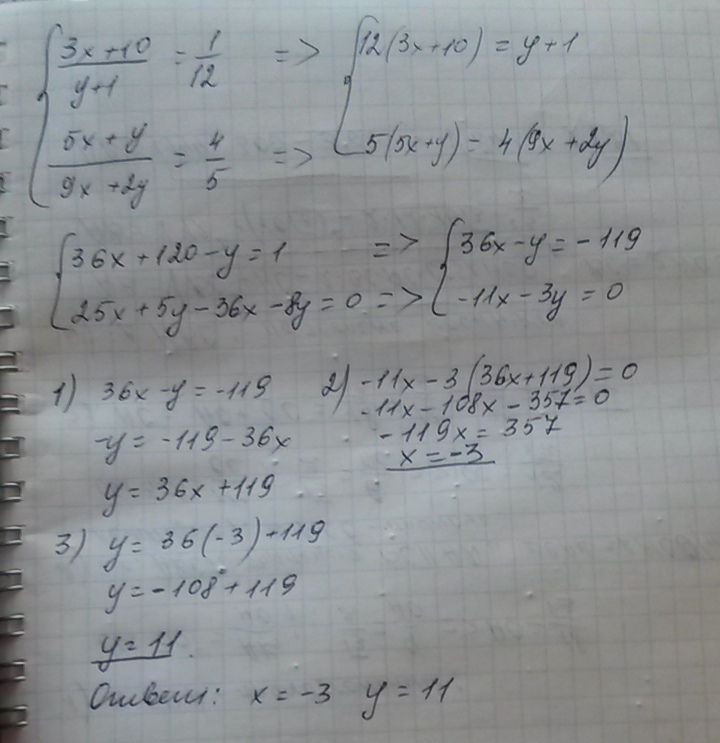 { (3x+10)/(y+1) = 1/12 => { 12(3x+10) = y+1
(5x+y)/(9x+2y) = 4/5 => 5(5x+y) = 4(9x+2y)
{ 36x+120-y=1 => { 36x-y=-119
25x+5y-36x-8y=0 => -11x-3y=0
1) 36x-y=-119
-y=-119-36x
y=36x+119
2) -11x-3(36x+119)=0
-11x-108x-357=0
-119x=357
x=-3
3) y=36(-3)+119
y=-108+119
y=11.
Ответ: x=-3 y=11